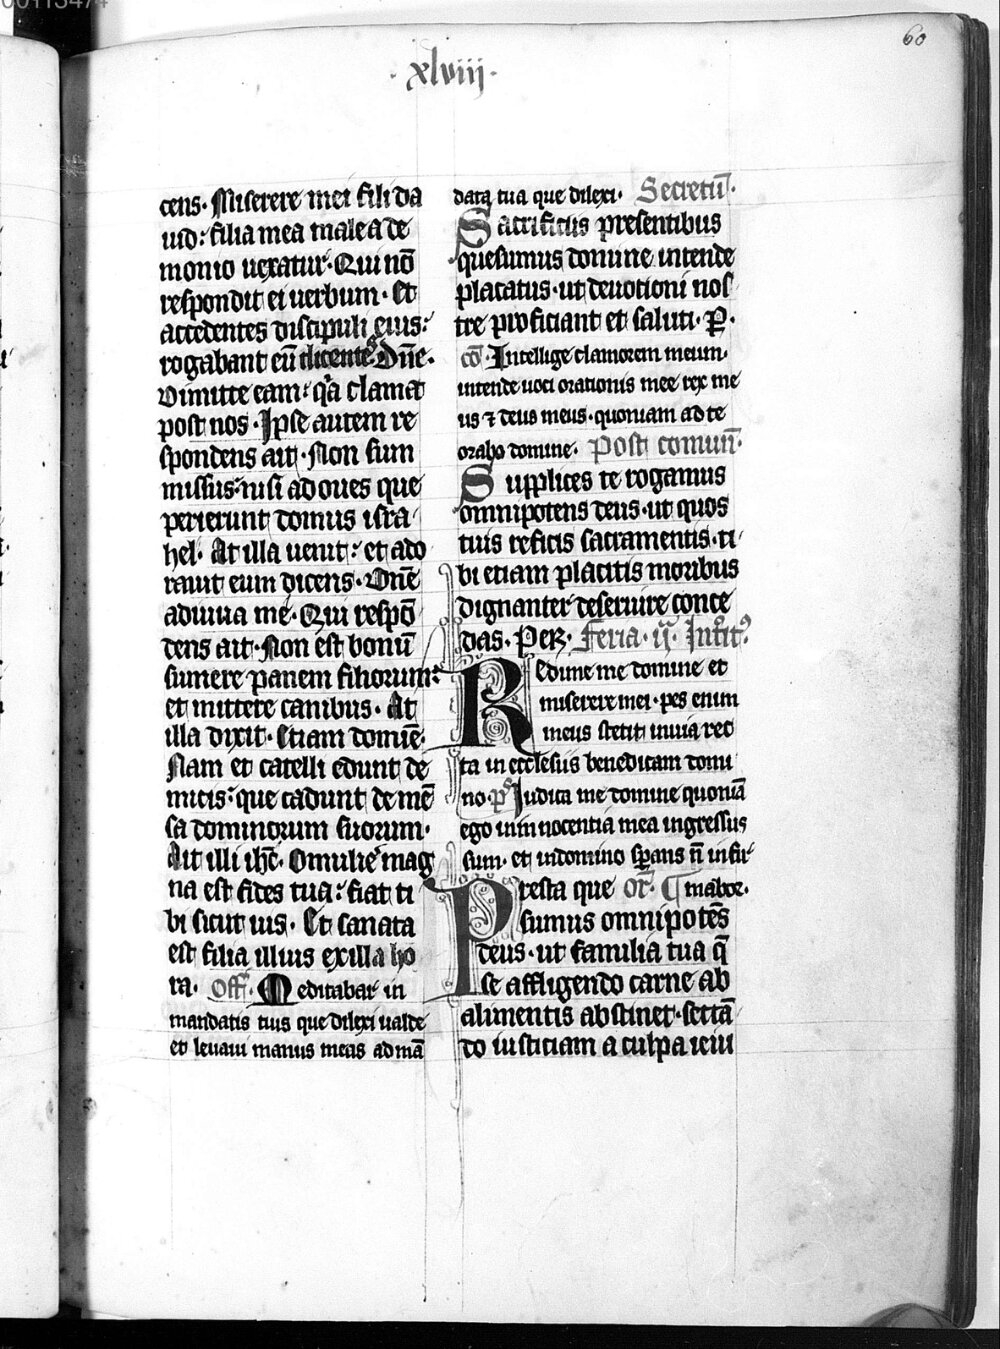 00113474
60
·xlviij·
cens· Miserere mei fili da
uid: filia mea male a de
monio uexatur· Qui nō
respondit ei uerbum· Et
accedentes discipuli eius:
rogabant eū dicentes Dn̄e·
Dimitte eam: qͣa clamat
post nos· Ipse autem re
spondens ait· Non sum
missus: nisi ad oues que
perierunt domus isra
hel· At illa uenit: et ado
rauit eum dicens· Dn̄e
adiuua me· Qui respō
dens ait· Non est bonū
sumere panem filiorum:
et mittere canibus· At
illa dixit· Etiam domine·
Nam et catelli edunt de
micis: que cadunt de mē
sa dominorum suorum·
Ait illi ihc̄· O mulier mag
na est fides tua: fiat ti
bi sicut uis· Et sanata
est filia illius ex illa ho
ra· Off· Meditabar in
mandatis tuis que dilexi ualde
et leuaui manus meas ad mā
data tua que dilexi· Secretū·
Sacrificiis presentibus
quesumus domine intende
placatus· ut deuotioni nos
tre proficiant et saluti· P·
cō· Intellige clamorem meum·
intende uoci orationis mee rex me
us ⁊ deus meus· quoniam ad te
orabo domine· Post comun̄·
Supplices te rogamus
omnipotens deus· ut quos
tuis reficis sacramentis· ti
bi etiam placitis moribus
dignanter deseruire conce
das· Per· Feria· ij· Int͛oit᷒
Redime me domine et
miserere mei· pes enim
meus stetit in uia rec
ta in ecclesiis benedicam domi
no· pͨ Iudica me domine quoniā
ego in innocentia mea ingressus
sum· et in domino sperans n̄ infir
Presta que or̄· ¶ mabor·
sumus omnipotēs
deus· ut familia tua q̄
se affligendo carne ab
alimentis abstinet· sectā
do iusticiam a culpa ieiu